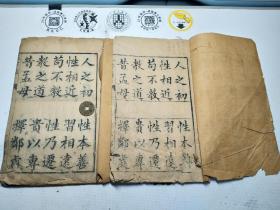 人之初　性本善
性相近　習相遠
苟不教　性乃遷
教之道　貴以專
昔孟母　擇鄰處
人之初　性本善
性相近　習相遠
苟不教　性乃遷
教之道　貴以專
昔孟母　擇鄰處